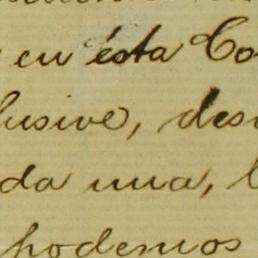 en ésta Co
lusive, des
da una, l
podemos